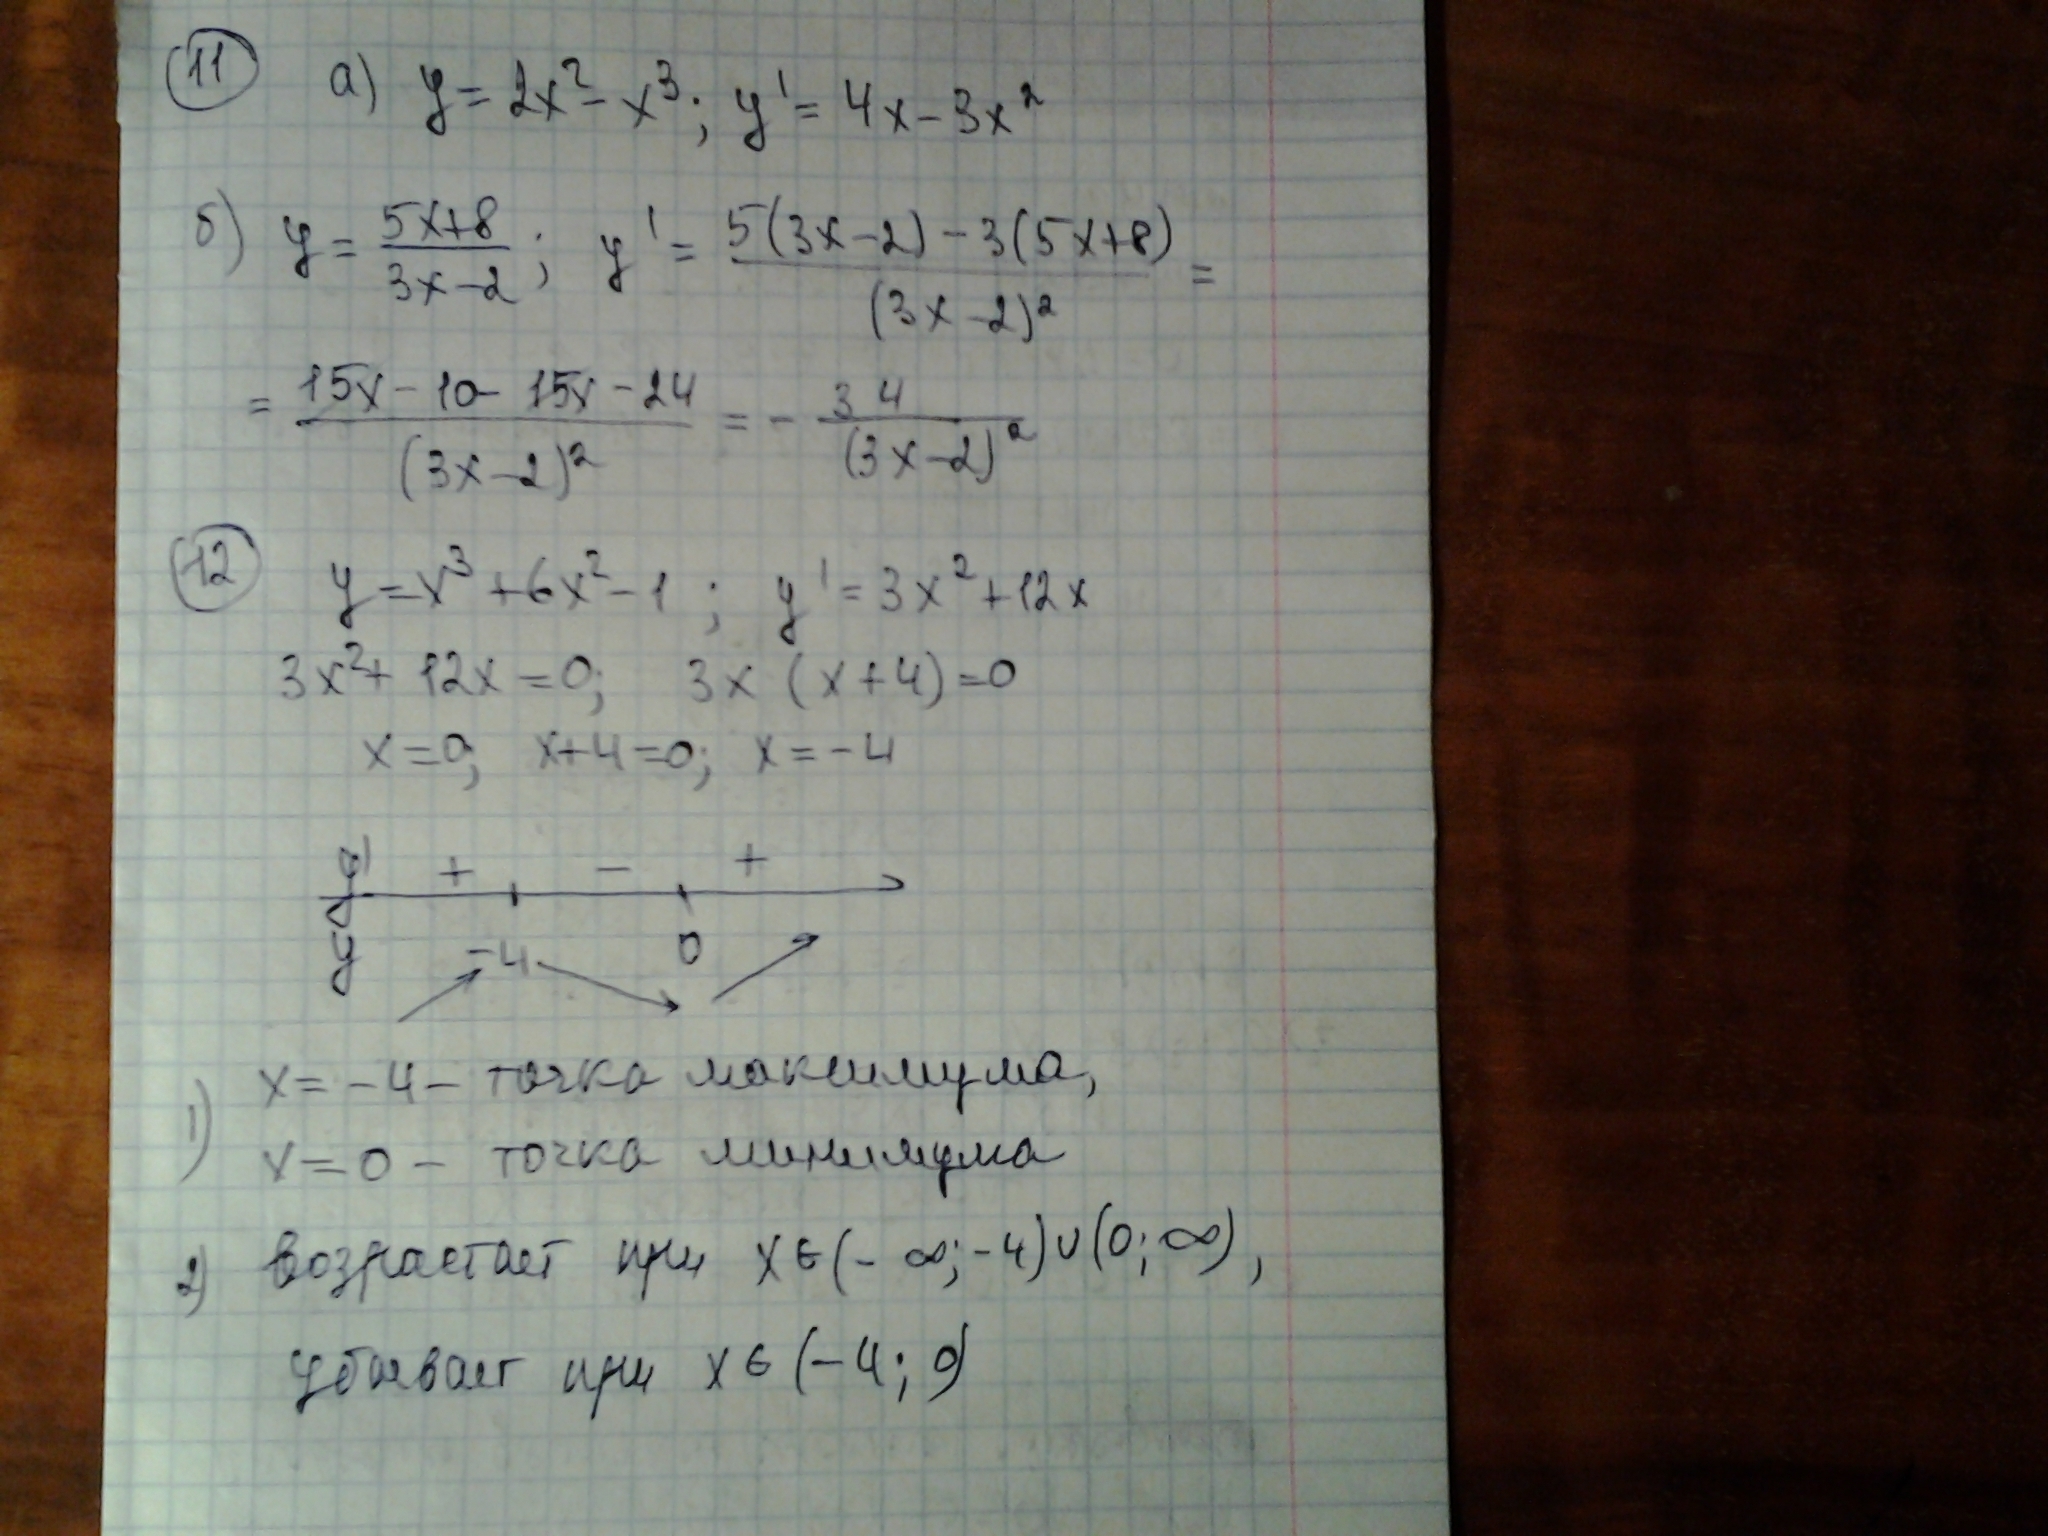 11 а) y = 2x² - x³; y' = 4x - 3x²
б) y = (5x+8)/(3x-2); y' = (5(3x-2) - 3(5x+8))/(3x-2)² =
= (15x - 10 - 15x - 24)/(3x-2)² = - 34/(3x-2)²
12 y = x³ + 6x² - 1; y' = 3x² + 12x
3x² + 12x = 0; 3x (x+4) = 0
x = 0; x+4 = 0; x = -4
+ - +
-4 0
1) x = -4 - точка максимума,
x = 0 - точка минимума
2) возрастает при x∈(-∞; -4)∪(0; ∞),
убывает при x∈(-4; 0)